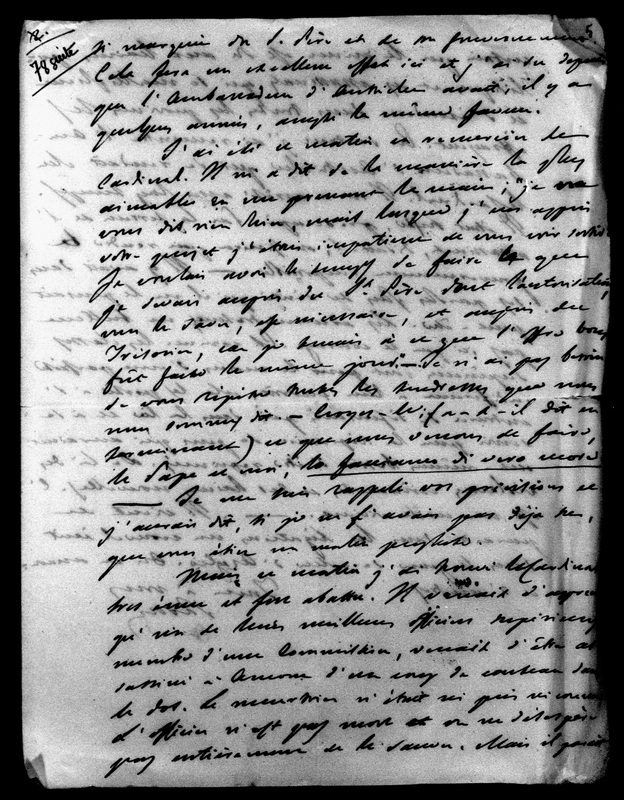 78 suite
5
si marquée du St Père et de son gouvernement.
Cela fera un excellent effet ici et j'ai su depuis
que l'Ambassadeur d'Autriche avait, il y a
quelques années, la même faveur.
J'ai été ce matin en remercier le
Cardinal. Il m'a dit de la manière la plus
aimable en me prenant la main; "je ne
vous dis rien hier, mais lorsque j'eus appris
votre projet j'étais impatient de vous voir sortir.
Je voulais avoir le temps de faire ce que
je devais auprès du St Père dont l'autorisation,
vous le savez, est nécessaire, et auprès du
Trésorier, car je tenais à ce que l'offre vous
fût faite le même jour" — Je n'ai pas besoin
de vous répéter toutes les tendresses que nous
nous sommes dit. — Croyez-le, (a-t-il dit en
terminant) ce que nous venons de faire,
le Pape et moi, lo facciamo di vero cuore
— Je me suis rappelé vos prévisions et
j'aurais dit, si je ne l'avais pas déjà su,
que vous étiez un maître prophète.
Mais ce matin j'ai trouvé le Cardinal
très ému et fort abattu. Il venait d'apprendre
qu'un de leurs meilleurs officiers
membre d'une Commission, venait d'être as
sassiné à Ancone d'un coup de couteau dans
le dos. Le meurtrier n'était ni pris ni connu
L'officier n'est pas mort et on ne désespère
pas entièrement de le sauver. Mais il paraît